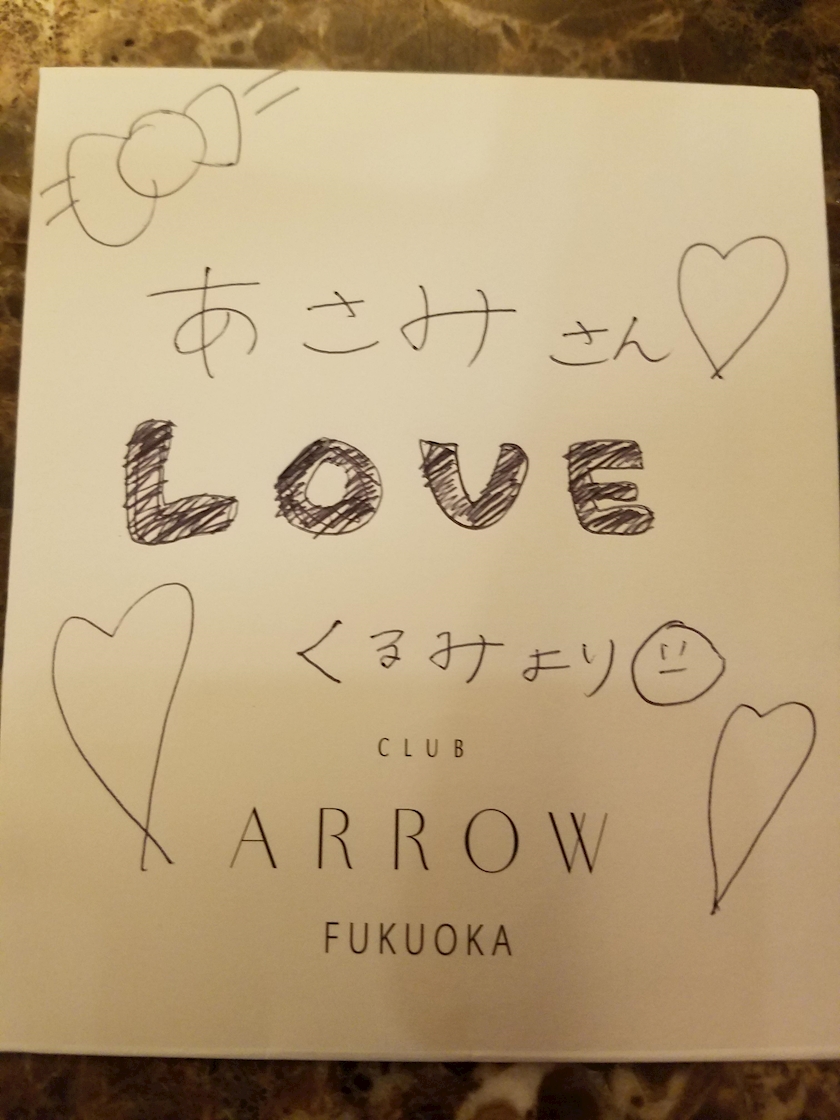 あさみさん
LOVE
くるみより
CLUB
ARROW
FUKUOKA